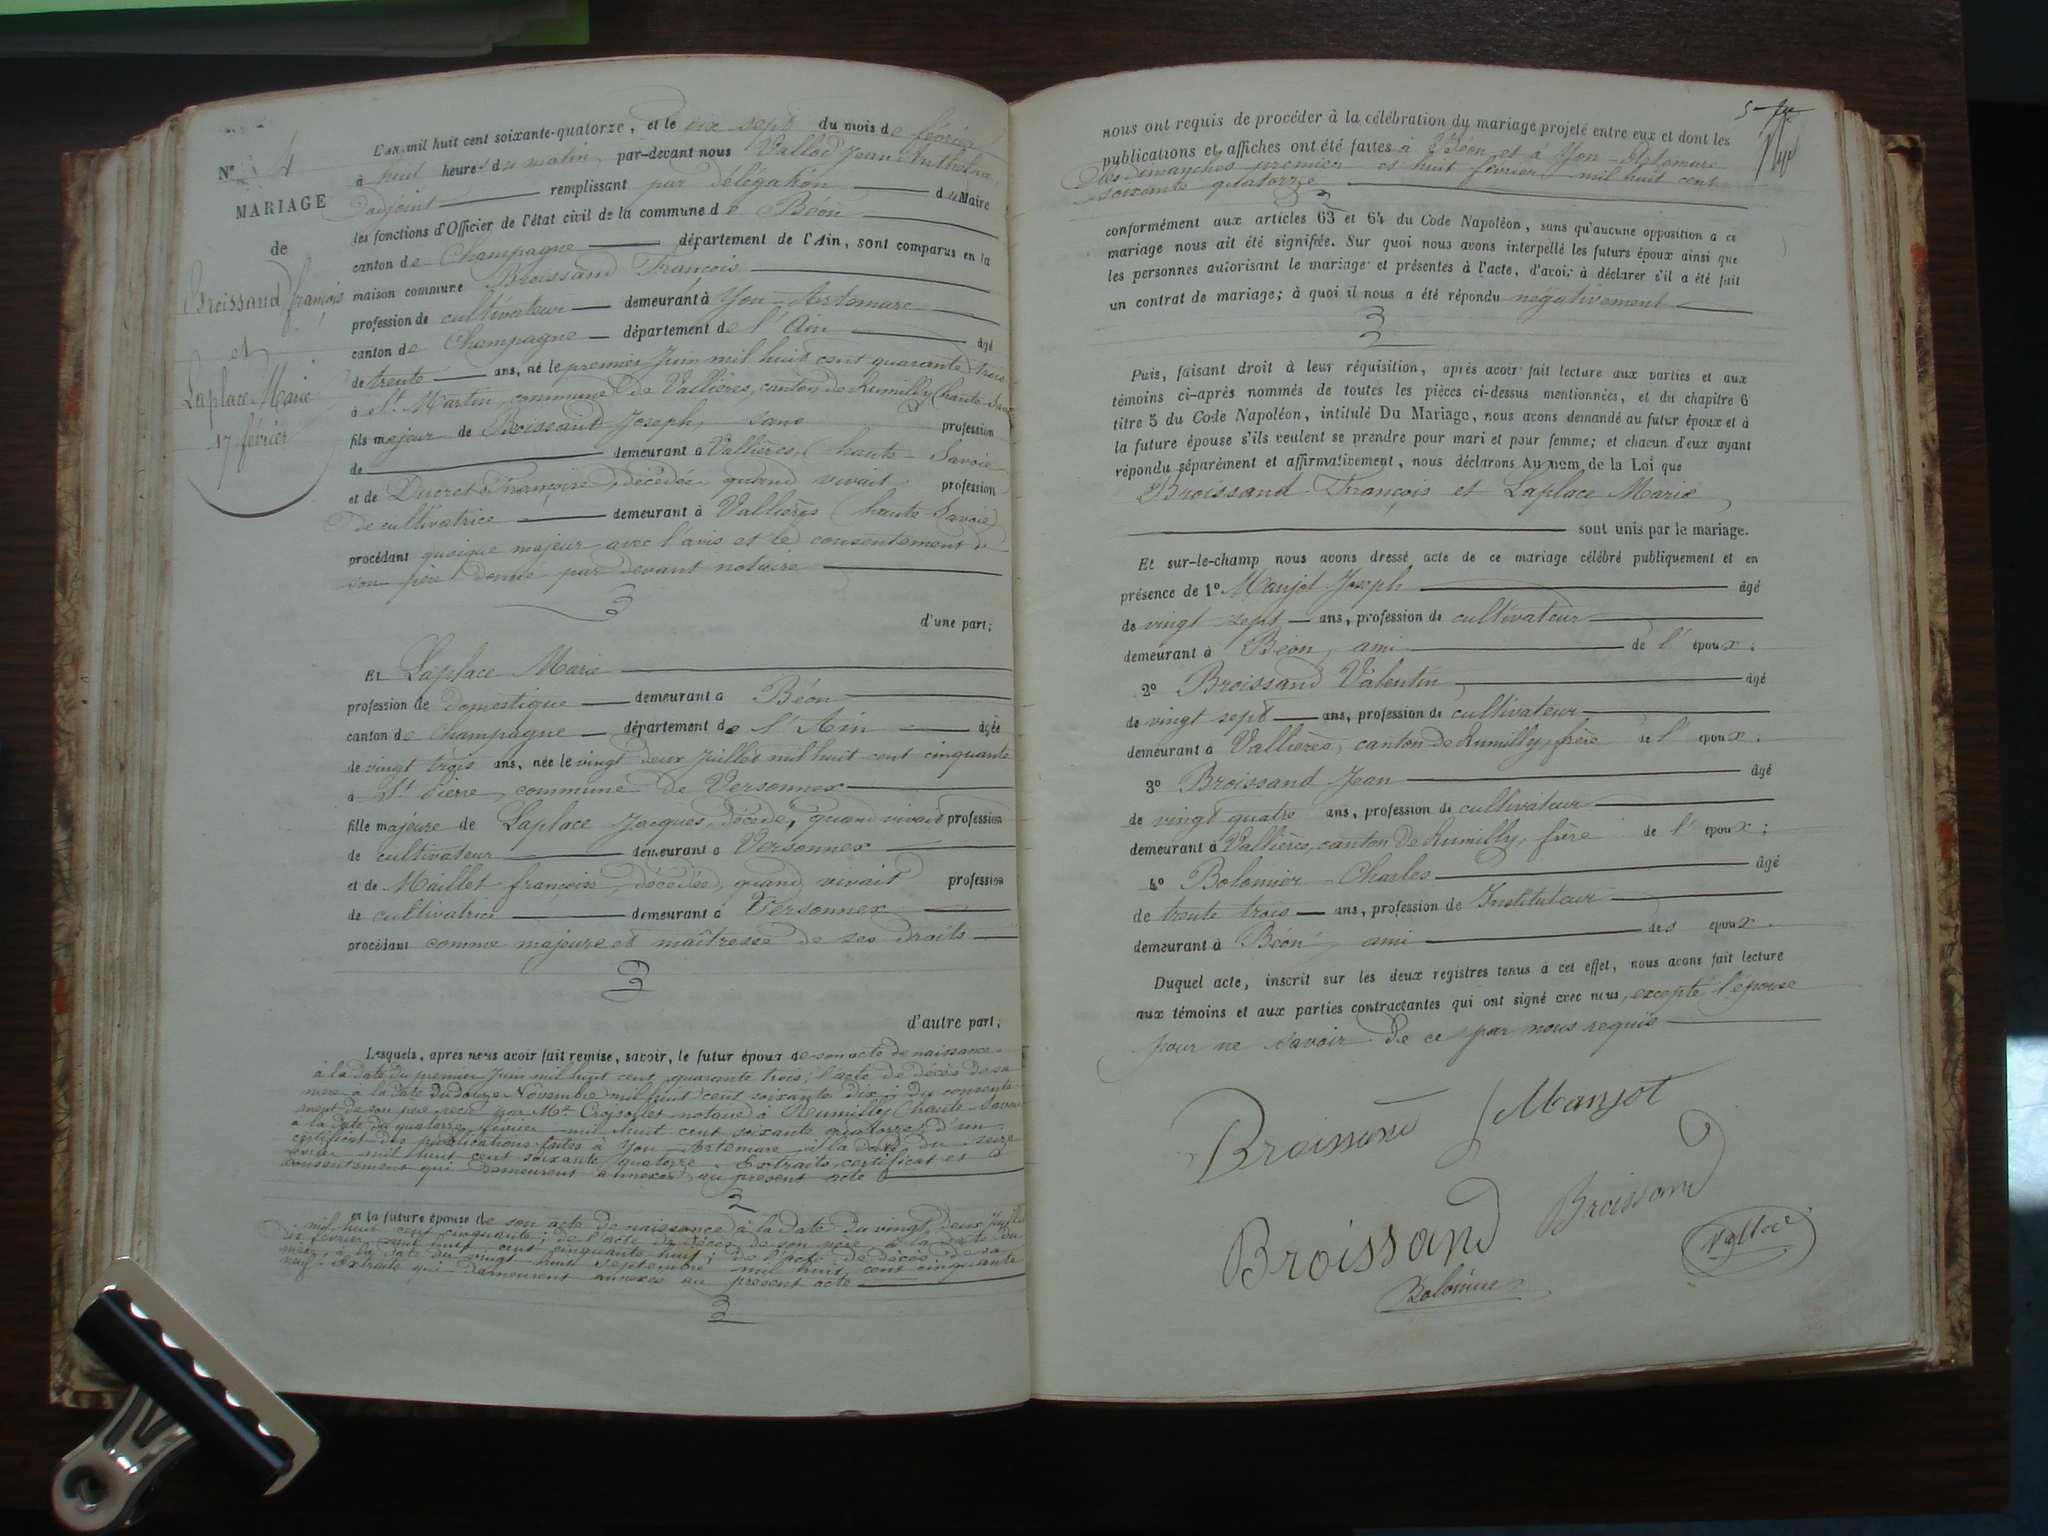 N° 4
MARIAGE
de
Broissand françois
et
Laplace Marie
17 février
L'AN mil huit cent soixante-quatorze, et le dix sept du mois de février
à huit heures du matin, par-devant nous Vallod Jean Anthelme
adjoint remplissant par délégation du Maire
les fonctions d'Officier de l'état civil de la commune de Béon
canton de Champagne département de l'Ain, sont comparus en la
maison commune Broissand François
profession de cultivateur demeurant à Yon-Artemare
canton de Champagne département de l'Ain âgé
de trente ans, né le premier Juin mil huit cent quarante trois
à St. Martin, commune de Vallières, canton de Rumilly (haute-Savoie
fils majeur de Broissand Joseph, sans profession
de demeurant à Vallières, (haute-Savoie
et de Ducret Françoise, décédée, quand vivait profession
de cultivatrice demeurant à Vallières (haute Savoie)
procédant quoique majeur avec l'avis et le consentement de
son père donné par devant notaire
d'une part;
Et Laplace Marie
profession de domestique demeurant à Béon
canton de Champagne département de l'Ain âgée
de vingt trois ans, née le vingt deux Juillet mil huit cent cinquante
à St. Pierre, commune de Versonnex
fille majeure de Laplace Jacques, décédé, quand vivait profession
de cultivateur demeurant à Versonnex
et de Maillet françoise, décédée, quand vivait profession
de cultivatrice demeurant à Versonnex
procédant comme majeure et maîtresse de ses droits
d'autre part;
Lesquels, après nous avoir fait remise, savoir, le futur époux de son acte de naissance
à la date du premier Juin mil huit cent quarante trois; l'acte de décès de sa
mère à la date du douze Novembre mil huit cent soixante dix; du consente-
ment de son père reçu par Me. Croysollet notaire à Rumilly (haute-Savoie
à la date du quatorze février mil huit cent soixante quatorze; d'un
certificat des publications faites à Yon-Artemare à la date du seize
février mil huit cent soixante quatorze. Extraits, certificat et
consentement qui demeurent annexés au présent acte
et la future épouse de son acte de naissance à la date du vingt deux Juillet
mil huit cent cinquante; de l'acte de décès de son père à la date du
dix février mil huit cent cinquante huit; de l'acte de décès de sa
mère, à la date du vingt huit septembre mil huit cent cinquante
neuf. Extraits qui demeurent annexés au présent acte
nous ont requis de procéder à la célébration du mariage projeté entre eux et dont les
publications et affiches ont été faites à Béon et à Yon-Artemare
les dimanches premier et huit février mil huit cent
soixante quatorze
conformément aux articles 63 et 64 du Code Napoléon, sans qu'aucune opposition a ce
mariage nous ait été signifiée. Sur quoi nous avons interpellé les futurs époux ainsi que
les personnes autorisant le mariage et présentes à l'acte, d'avoir à déclarer s'il a été fait
un contrat de mariage; à quoi il nous a été répondu négativement
Puis, faisant droit à leur réquisition, après avoir fait lecture aux parties et aux
témoins ci-après nommés de toutes les pièces ci-dessus mentionnées, et du chapitre 6
titre 5 du Code Napoléon, intitulé Du Mariage, nous avons demandé au futur époux et à
la future épouse s'ils veulent se prendre pour mari et pour femme; et chacun d'eux ayant
répondu séparément et affirmativement, nous déclarons Au nom de la Loi que
Broissand François et Laplace Marie
sont unis par le mariage.
Et sur-le-champ nous avons dressé acte de ce mariage célébré publiquement et en
présence de 1° Manjot Joseph âgé
de vingt sept ans, profession de cultivateur
demeurant à Béon, ami de l'époux;
2° Broissand Valentin âgé
de vingt sept ans, profession de cultivateur
demeurant à Vallières, canton de Rumilly, frère de l'époux;
3° Broissand Jean âgé
de vingt quatre ans, profession de cultivateur
demeurant à Vallières, canton de Rumilly, frère de l'époux;
4° Bolomier Charles âgé
de trente trois ans, profession de Instituteur
demeurant à Béon, ami des époux.
Duquel acte, inscrit sur les deux registres tenus à cet effet, nous avons fait lecture
aux témoins et aux parties contractantes qui ont signé avec nous, excepté l'épouse
pour ne savoir de ce par nous requis
Broissand Manjot
Broissand
Broissand
Vallod
Bolomier